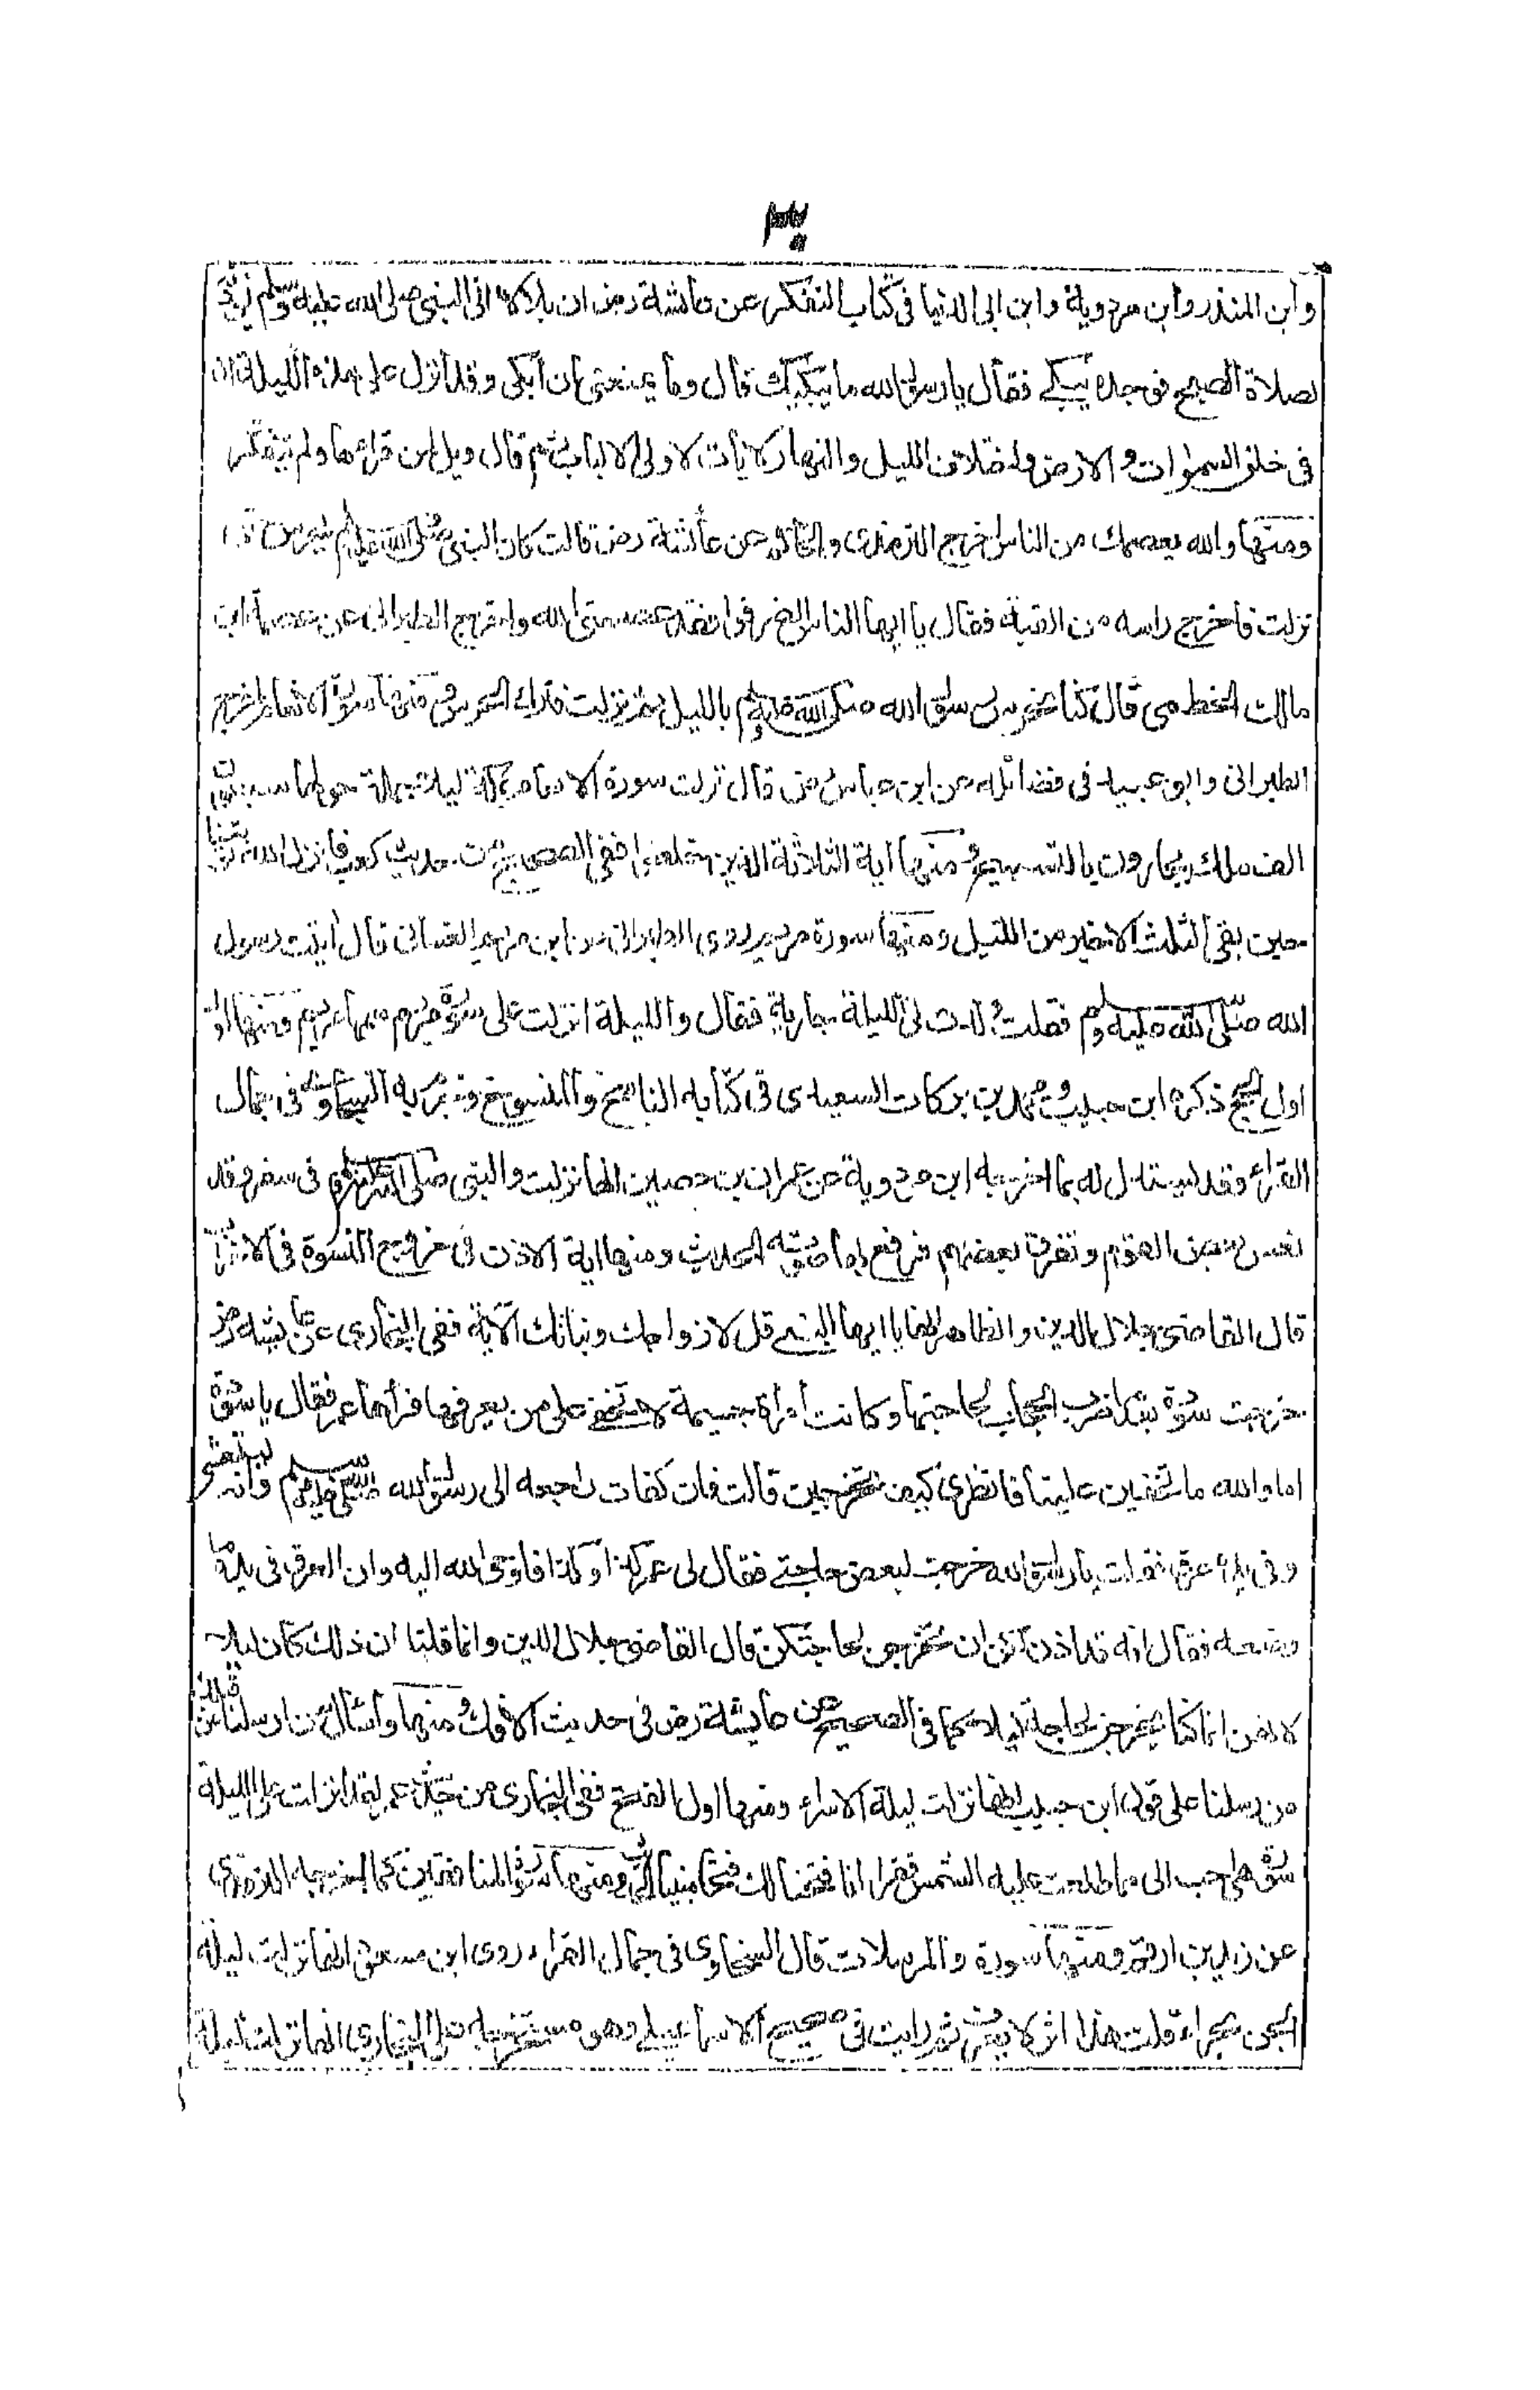 وابن المنذر وابن مردوية وابن ابى الدنيا فى كتاب التفكر عن عائشة رض ان بلالا اتى النبى صلى الله عليه وسلم
لصلاة الصبح فوجده يبكى فقال يا رسول الله ما يبكيك قال وما يمنعنى ان أبكى وقد أنزل على هذه الليلة ان
فى خلق السموات والارض واختلاف الليل والنهار لايات لاولى الالباب ثم قال ويل لمن قراءها ولم يتفكر
ومنها والله يعصمك من الناس اخرج الترمذى والحاكم عن عائشة رض قالت كان النبى صلى الله عليه وسلم يحرس حتى
نزلت فاخرج راسه من القبة فقال يا ايها الناس انصرفوا فقد عصمنى الله واخرج الطبرانى عن عصمة ابن
مالك الخطمى قال كنا نحرس رسول الله صلى الله عليه وسلم بالليل حتى نزلت فترك الحرس ومنها سورة الانعام اخرج
الطبرانى وابو عبيد فى فضائله عن ابن عباس رض قال نزلت سورة الانعام بمكة ليلا جملة حولها سبعون
الف ملك يجارون بالتسبيح ومنها اية الثلاثة الذين خلفوا ففى الصحيح من حديث كعب فانزل الله توبتنا
حين بقى الثلث الاخير من الليل ومنها سورة مريم روى الطبرانى عن ابن مريم الغسانى قال أتيت رسول
الله صلى الله عليه وسلم فقلت ولدت لى الليلة جارية فقال والليلة انزلت على سورة مريم سمها مريم ومنها
اول الحج ذكره ابن حبيب ومحمد بن بركات السعيدى فى كتابه الناسخ والمنسوخ وجزم به السخاوى فى جمال
القراء وقد يستدل له بما اخرجه ابن مردوية عن عمران بن حصين انها نزلت والنبى صلى الله عليه وسلم فى سفر وقد
نعس بعض القوم وتفرق بعضهم فرفع بها صوته الحديث ومنها اية الاذن فى خروج النسوة فى الاحزاب
قال القاضى جلال الدين والظاهر انها يا ايها النبى قل لازواجك وبناتك الآية ففى البخارى عن عايشة رض
خرجت سودة بعد ما ضرب الحجاب لحاجتها وكانت امراة جسيمة لا تخفى على من يعرفها فرآها عمر فقال يا سودة
اما والله ما تخفين علينا فانظرى كيف تخرجين قالت فانكفات راجعة الى رسول الله صلى الله عليه وسلم وانه ليتعشى
وفى يده عرق فقلت يا رسول الله خرجت لبعض حاجتى فقال لى عمر كذا وكذا فاوحى الله اليه وان العرق فى يده ما
وضعه فقال انه قد اذن لكن ان تخرجن لحاجتكن قال القاضى جلال الدين وانما قلنا ان ذلك كان ليلا
لانهن انما كنا يخرجن لحاجة ليلا كما فى الصحيح عن عايشة رض فى حديث الافك ومنها واسال من ارسلنا قبلك
من رسلنا على قول ابن حبيب انها نزلت ليلة الاسراء ومنها اول الفتح ففى البخارى من حديث عمر لقد انزلت على الليلة
سورة هى احب الى مما طلعت عليه الشمس فقرا انا فتحنا لك فتحا مبينا ومنها سورة المنافقين كما اخرجه الترمذى
عن زيد بن ارقم ومنها سورة والمرسلات قال السخاوى فى جمال القراء روى ابن مسعود انها نزلت ليلة
الجن بحراء قلت هذا اثر لا يعرف ثم رايت فى صحيح الاسماعيلى وهو مستخرجه على البخارى انها نزلت ليلة